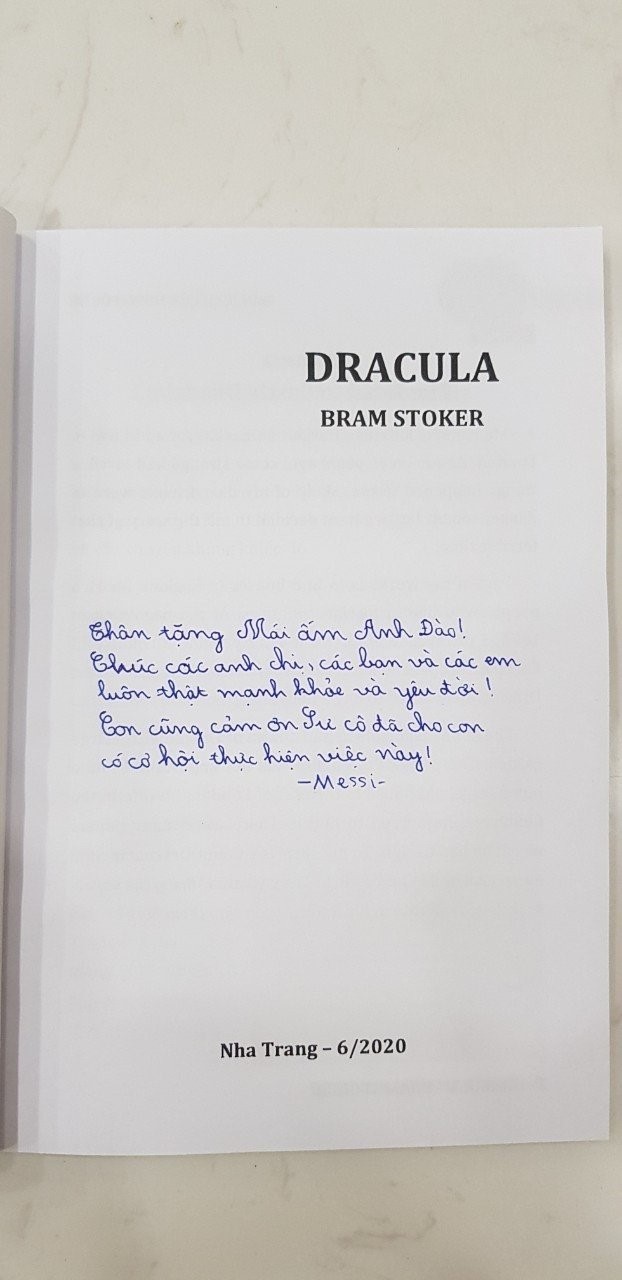 DRACULA
BRAM STOKER
Thân tặng Mái ấm Anh Đào!
Chúc các anh chị, các bạn và các em
luôn thật mạnh khỏe và yêu đời!
Con cũng cảm ơn Sư cô đã cho con
có cơ hội thực hiện việc này!
-Messi-
Nha Trang – 6/2020